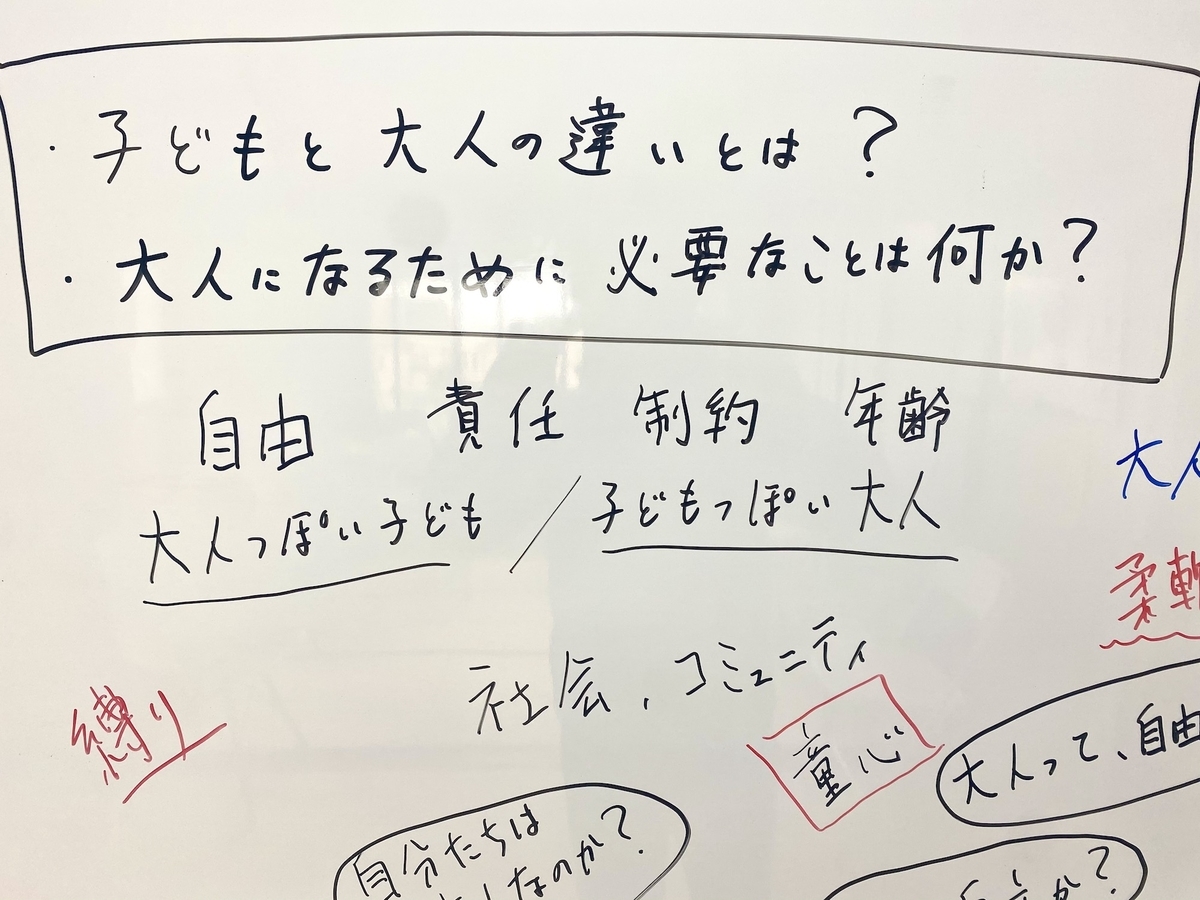 ・子どもと大人の違いとは？
・大人になるために必要なことは何か？
自由 責任 制約 年齢
大人っぽい子ども／子どもっぽい大人
大人
柔軟
社会、コミュニティ
縛り
童心
大人って、自由
自分たちは
なのか？
か？